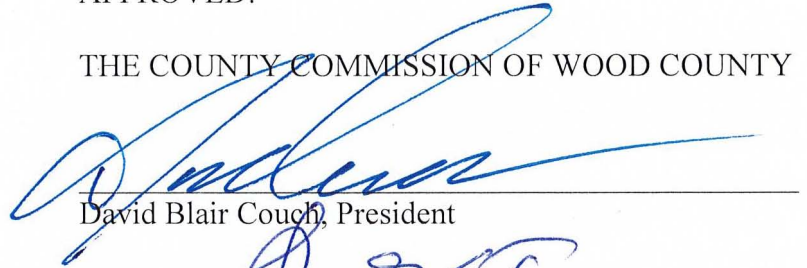 APPROVED:
THE COUNTY COMMISSION OF WOOD COUNTY
David Blair Couch, President